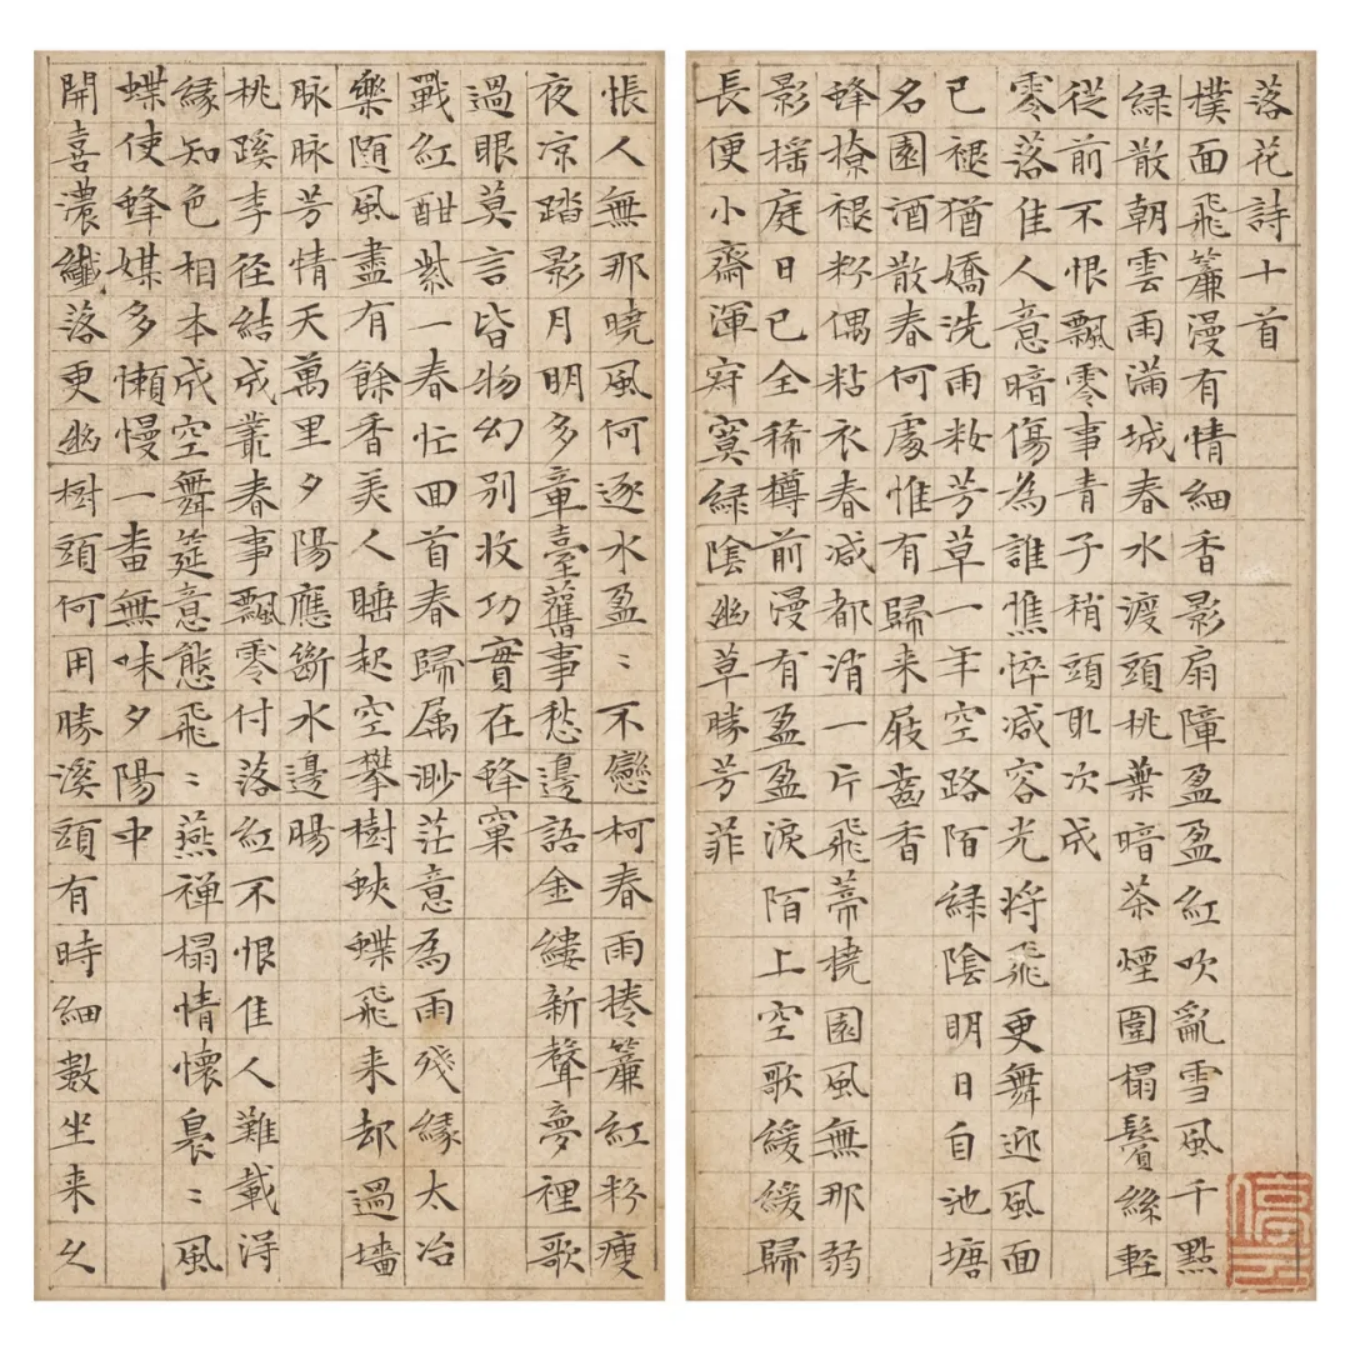 落花詩十首
樸面飛簾漫有情細香影扇障盈盈紅吹亂雪風千點
綠散朝雲雨滿城春水渡頭桃葉暗茶煙圍榻鬢絲輕
從前不恨飄零事青子稍頭取次成
零落佳人意暗傷為誰憔悴減容光将飛更舞迎風面
已褪猶嬌洗雨妝芳草一年空路陌綠陰明日自池塘
名園酒散春何處惟有歸来屐齒香
蜂撩褪粉偶粘衣春減都消一片飛蒂橈園風無那弱
影搖庭日已全稀樽前漫有盈盈淚陌上空歌緩緩歸
長便小齋渾寂寞綠陰幽草勝芳菲
悵人無那曉風何逐水盈〻不戀柯春雨捲簾紅粉瘦
夜凉踏影月明多章臺舊事愁邊語金縷新聲夢裡歌
過眼莫言皆物幻別收功實在蜂窠
戰紅酣紫一春忙回首春歸属渺茫意為雨殘緣太冶
樂随風盡有餘香美人睡起空攀樹蛺蝶飛来却過墻
脉脉芳情天萬里夕陽應斷水邊腸
桃蹊李径結成叢春事飄零付落紅不恨佳人難載淂
緣知色相本成空舞筵意態飛〻燕禅榻情懷裊〻風
蝶使蜂媒多懶慢一畨無味夕陽中
開喜濃纖落更幽樹頭何用勝溪頭有時細數坐来久